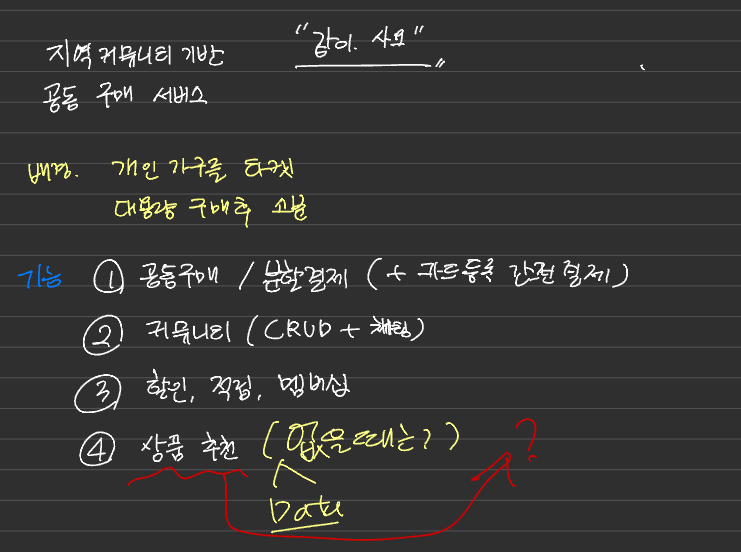 지역 커뮤니티 기반 "같이. 사요"
공동 구매 서비스
배경. 개인 가구를 타겟
대용량 구매후 소분
기능 ① 공동구매 / 분할결제 (+ 카드등록 간편결제)
② 커뮤니티 (CRUD + 채팅)
③ 할인, 적립, 멤버십
④ 상품 추천 (없을때는?) ?
Data